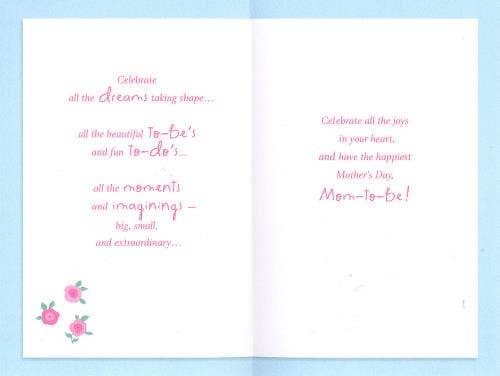 Celebrate
all the dreams taking shape...
all the beautiful To-be's
and fun To-do's...
all the moments
and imaginings –
big, small,
and extraordinary...
Celebrate all the joys
in your heart,
and have the happiest
Mother's Day,
Mom-to-be!